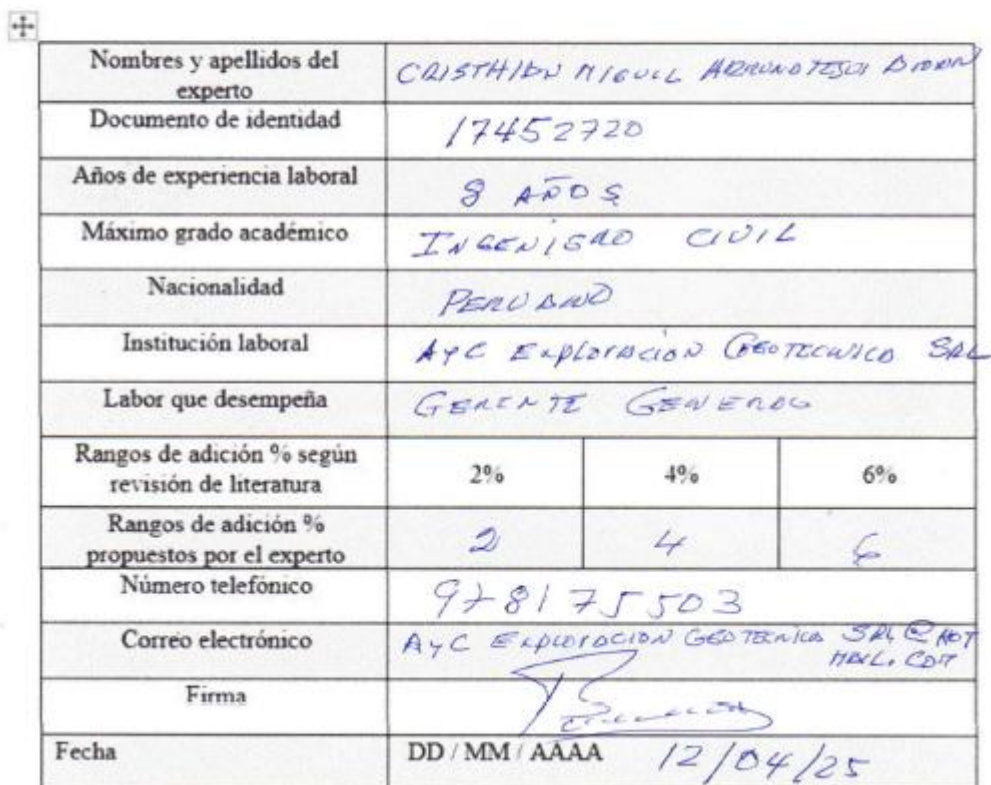 Nombres y apellidos del
experto
CRISTHIAN MIGUEL
Documento de identidad
17452720
Años de experiencia laboral
8 AÑOS
Máximo grado académico
INGENIERO CIVIL
Nacionalidad
PERUANO
Institución laboral
AyC EXPLORACION GEOTECNICA SRL
Labor que desempeña
GERENTE GENERAL
Rangos de adición % según
revisión de literatura
2% 4% 6%
Rangos de adición %
propuestos por el experto
2 4 6
Número telefónico
978175503
Correo electrónico
AyC EXPLORACION GEOTECNICA SRL @ HOT
MAIL. COM
Firma
Fecha
DD / MM / AAAA 12/04/25